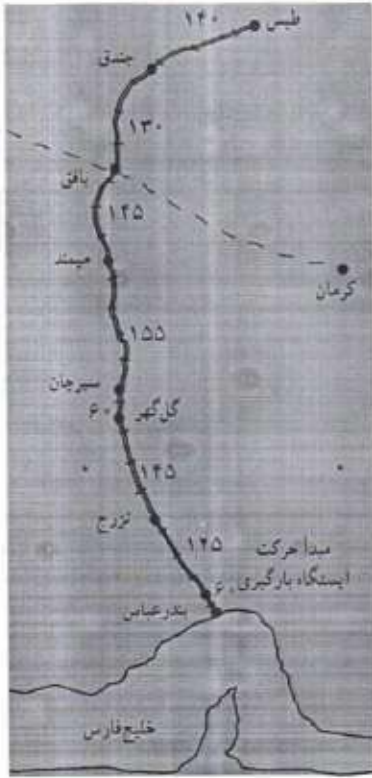 طبس
۱۴۰
جندق
۱۳۰
بافق
۱۴۵
میمند
کرمان
۱۵۵
سیرجان
۶۰
گل‌گهر
۱۴۵
تزرج
۱۴۵
مبدأ حرکت
ایستگاه بارگیری
۶۰
بندرعباس
خلیج فارس